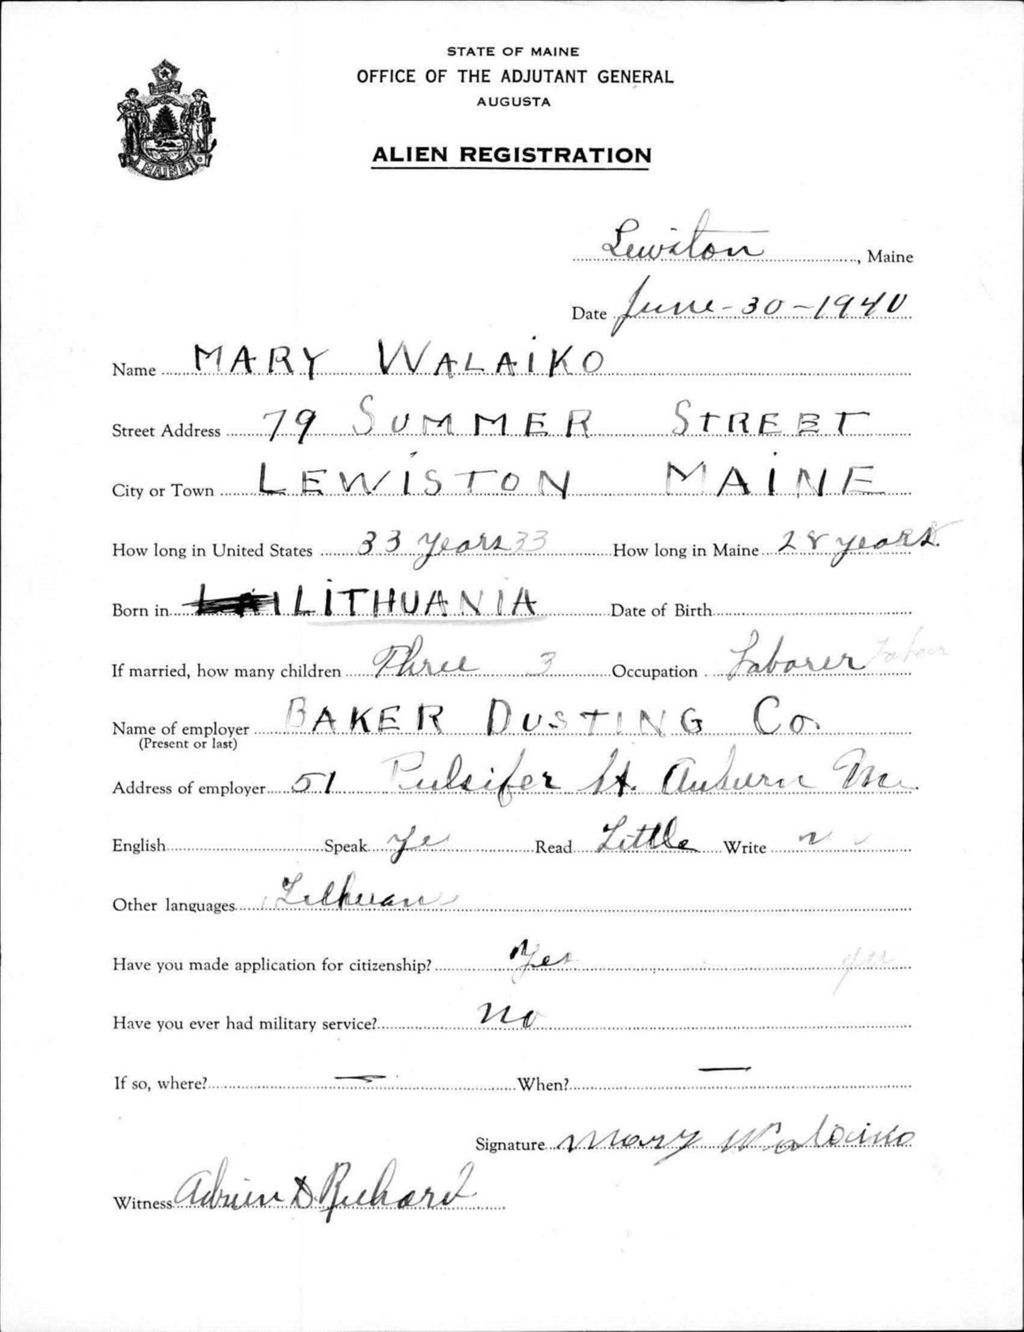 STATE OF MAINE
OFFICE OF THE ADJUTANT GENERAL
AUGUSTA
ALIEN REGISTRATION
MAINE
Lewiston, Maine
Date June-30-1940
Name MARY WALAIKO
Street Address 79 SUMMER STREET
City or Town LEWISTON MAINE
How long in United States 33 years 33 How long in Maine 28 years
Born in LITHUANIA Date of Birth
If married, how many children Three 3 Occupation Laborer Labour
Name of employer BAKER DUSTING Co.
(Present or last)
Address of employer 51 Pulsifer St. Auburn Me.
English Speak Ye Read Little Write
Other languages
Have you made application for citizenship? Yes yes
Have you ever had military service? No
If so, where? — When? —
Signature Mary Walaiko
Witness Adrien D Richard